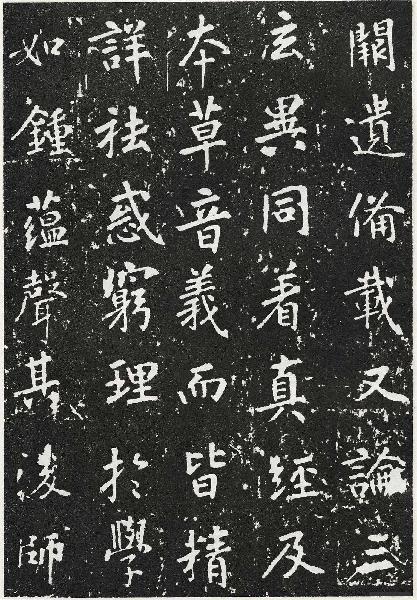 闕遺備載又論三
玄異同著真經及
本草音義而皆精
詳祛惑窮理於學
如鍾蘊聲其後師